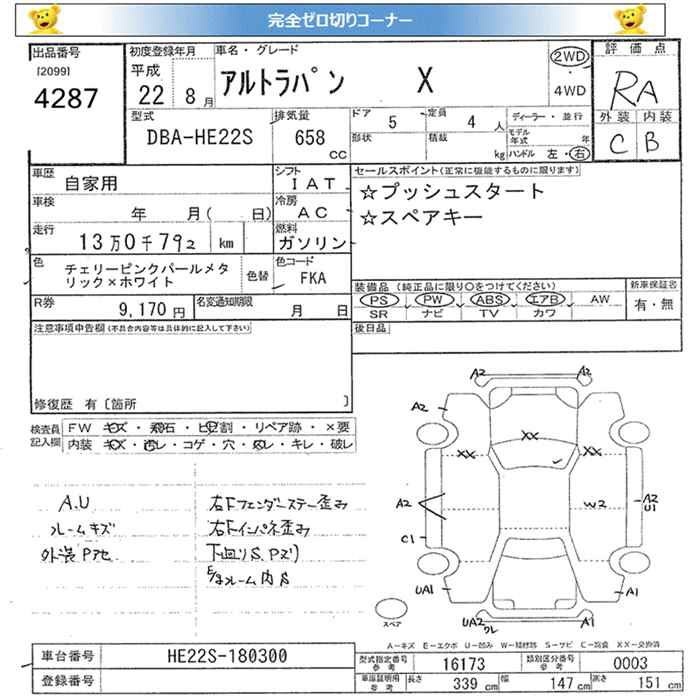 完全ゼロ切りコーナー
出品番号
[2099]
4287
初度登録年月
平成
22 8月
車名・グレード
アルトラパン X
2WD
・
4WD
評価点
RA
外装 内装
C B
型式
DBA-HE22S
排気量
658
CC
ドア 5
定員 4 人
形状
積載 kg
ディーラー・並行
モデル年式 年
ハンドル 左・右
車歴
自家用
シフト
IAT
車検
年 月( 日)
冷房
AC
走行
13万0千792 km
燃料
ガソリン
色
チェリーピンクパールメタ
リック×ホワイト
色替
色コード
FKA
R券
9,170円
名変通知期限
月 日
セールスポイント(正常に機能するものに限ります)
☆プッシュスタート
☆スペアキー
装備品(純正品に限り○をつけてください)
PS PW ABS エアB AW
SR ナビ TV カワ
新車保証書
有・無
後日品
注意事項申告欄(不具合内容等は具体的に記入して下さい)
修復歴 有[箇所 ]
検査員
記入欄
FW キズ・飛石・ヒビ割・リペア跡・×要
内装 キズ・汚レ・コゲ・穴・スレ・キレ・破レ
A.U
ルームキズ
右Fフェンダーステー歪み
右Fインパネ歪み
A2
A2
A2
XX
XX
XX
A2
W2
A2
U1
C1
UA1
A1
UA2
ワレ
A1
スペア
A－キズ E－エクボ U－凹み W－補修跡 S－サビ C－腐食 XX－交換済
車台番号
HE22S-180300
登録番号
型式指定番号
参考
16173
類別区分番号
参考
0003
車庫証明用
参考
長さ 339 cm
幅 147 cm
高さ 151 cm